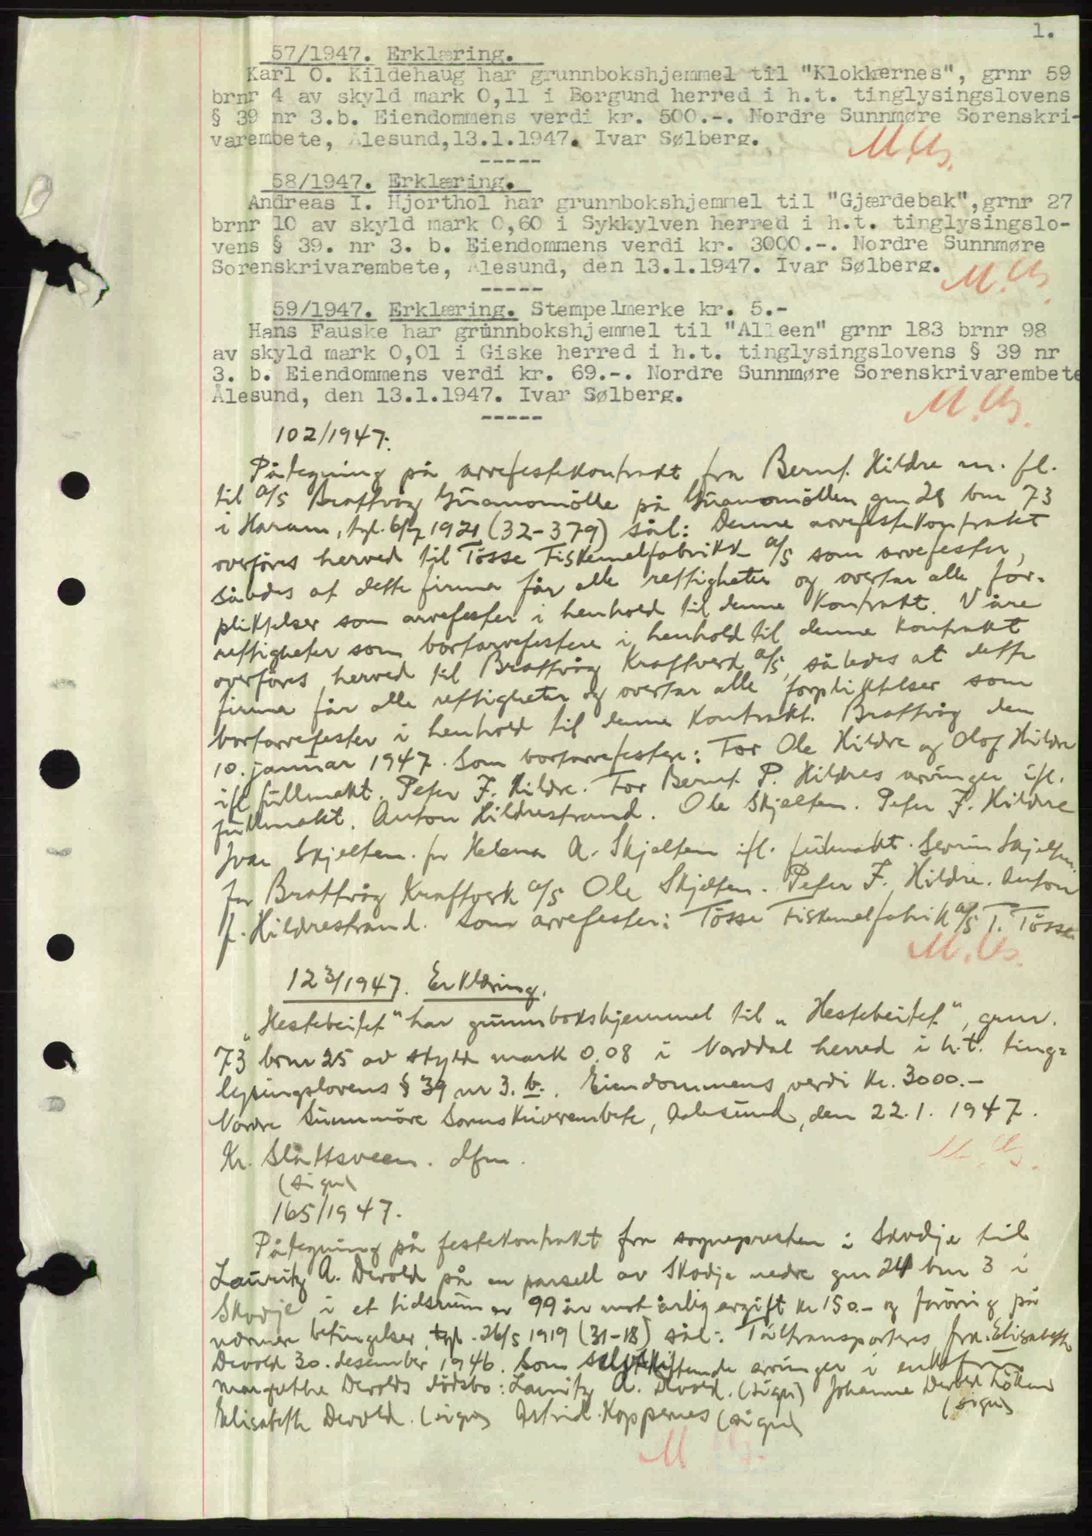 1.
57/1947. Erklæring.
Karl O. Kildehaug har grunnbokshjemmel til "Klokkernes", grnr 59
brnr 4 av skyld mark 0,11 i Borgund herred i h.t. tinglysingslovens
§ 39 nr 3.b. Eiendommens verdi kr. 500.-. Nordre Sunnmøre Sorenskri-
varembete, Ålesund,13.1.1947. Ivar Sølberg.
-----
58/1947. Erklæring.
Andreas I. Hjorthol har grunnbokshjemmel til "Gjærdebak",grnr 27
brnr 10 av skyld mark 0,60 i Sykkylven herred i h.t. tinglysingslo-
vens § 39. nr 3. b. Eiendommens verdi kr. 3000.-. Nordre Sunnmøre
Sorenskrivarembete, Ålesund, den 13.1.1947. Ivar Sølberg.
-----
59/1947. Erklæring. Stempelmerke kr. 5.-
Hans Fauske har grunnbokshjemmel til "Alleen" grnr 183 brnr 98
av skyld mark 0,01 i Giske herred i h.t. tinglysingslovens § 39 nr
3. b. Eiendommens verdi kr. 69.-. Nordre Sunnmøre Sorenskrivarembete
Ålesund, den 13.1.1947. Ivar Sølberg.
-----
102/1947.
Påtegning på arvefestekontrakt fra Bernt. Hildre m. fl.
til a/s Brattvåg Guanomölle på Guanomöllen gnr 28 bnr 73
i Haram, tgl. 6/7 1921 (32-379) sål: Denne arvefestekontrakt
overföres herved til Tösse Fiskemelfabrikk a/s som arvefester,
således at dette firma får alle rettigheter og overtar alle for-
pliktelser som arvefester i henhold til denne kontrakt. Våre
rettigheter som bortarvefestere i henhold til denne kontrakt
overföres herved til Brattvåg Kraftverk a/s, således at dette
firma får alle rettigheter og overtar alle forpliktelser som
bortarvefester i henhold til denne kontrakt. Brattvåg den
10. januar 1947. Som bortarvefestere: For Ole Hildre og Olof Hildre
ifl. fullmakt. Peter J. Hildre. For Bernt. P. Hildres arvinger ifl.
fullmakt. Anton Hildrestrand. Ole Skjelten. Peter J. Hildre
Ivar Skjelten. for Helena A. Skjelten ifl. fullmakt. Severin Skjelten.
for Brattvåg Kraftverk a/s Ole Skjelten. Peter J. Hildre. Anton
f. Hildrestrand. som arvefester: Tösse Fiskemelfabrikk a/s T. Tösse
123/1947. Erklæring.
"Hestebeitet" har grunnbokshjemmel til "Hestebeitet", gnr.
73 brnr 25 av skyld mark 0.08 i Norddal herred i h.t. ting-
lysingslovens § 39 nr 3. b. Eiendommens verdi kr. 3000.-
Nordre Sunnmöre Sorenskriverembete, Aalesund, den 22.1.1947.
Kr. Slåttsveen. dfm.
(sign)
165/1947.
Påtegning på festekontrakt fra sognepresten i Skodje til
Lauritz A. Devold på en parsell av Skodje nedre gnr 24 bnr 3 i
Skodje i et tidsrum av 99 år mot årlig avgift kr 150.- og forövrig på
nærmere betingelser, tgl. 26/5 1919 (31-18) sål: Tiltransporteres frk. Elisabeth
Devold 30. desember 1946. Som selvskiftende arvinger i enkefru
Margrethe Devolds dödsbo: Lauritz A. Devold. (sign) Johanne Devold Löken
Elisabeth Devold. (sign) Astrid Koppernes (sign) (sign)